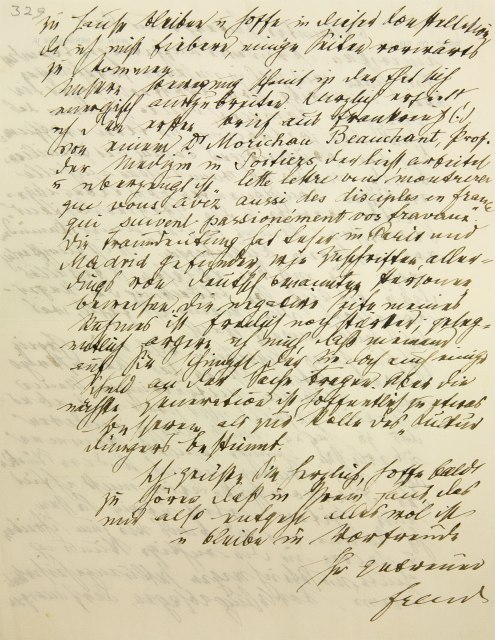 329
zu Hause bleiben u hoffe in dieser Konstellation
da ich nicht fiebere, einige Seiten vorwärts
zu kommen
Unsere Bewegung scheint in der That sich
energisch auszubreiten. Kürzlich erhielt
ich den ersten Brief aus Frankreich (!)
von einem Dr Morichau Beauchant, Prof.
der Medizin in Poitiers, der liest arbeitet
u überzeugt ist. Cette lettre vous montrera
que vous avez aussi des disciples en France
qui suivent passionement vos travaux.
Die Traumdeutung hat Leser in Paris und
Madrid gefunden, wie Zuschriften aller-
dings von deutsch benannten Personen
beweisen. Die negative Seite meines
Ruhmes ist freilich noch stärker; geleg-
entlich ärgere ich mich daß niemand
auf Sie schimpft, der Sie doch auch einige
Schuld an der Sache tragen. Aber die
nächste Generation ist hoffentlich zu etwas
besserem, als zur Rolle des „Kultur
düngers" bestimmt.
Ich grüße Sie herzlich, hoffe bald
zu hören daß in Ihrem Haus, das
mir also entgeht alles wol ist
u bleibe in Vorfreude
Ihr getreuer
Freud